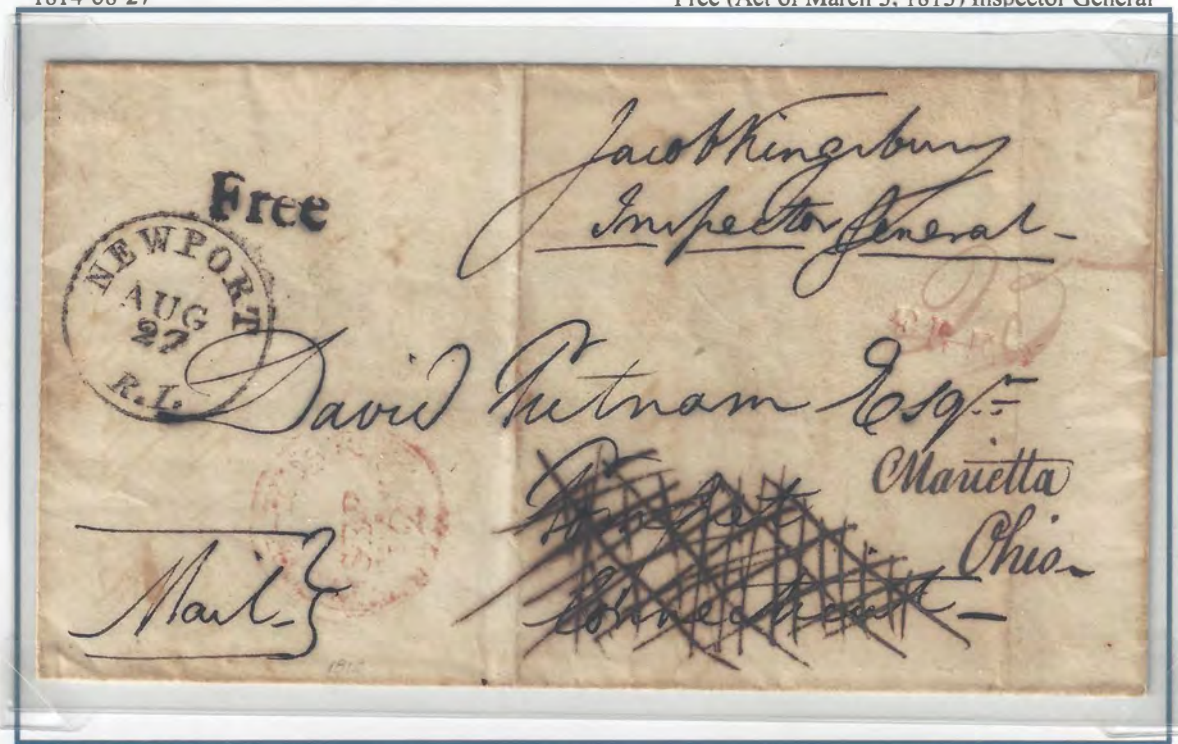 1814-08-27 Free (Act of March 3, 1813) Inspector General
Jacob Kingsbury
Inspector General
Free
NEWPORT
AUG
27
R.I.
David Putnam Esqr
Marietta
Ohio
Pomfret
Connecticut
SEP
Mail